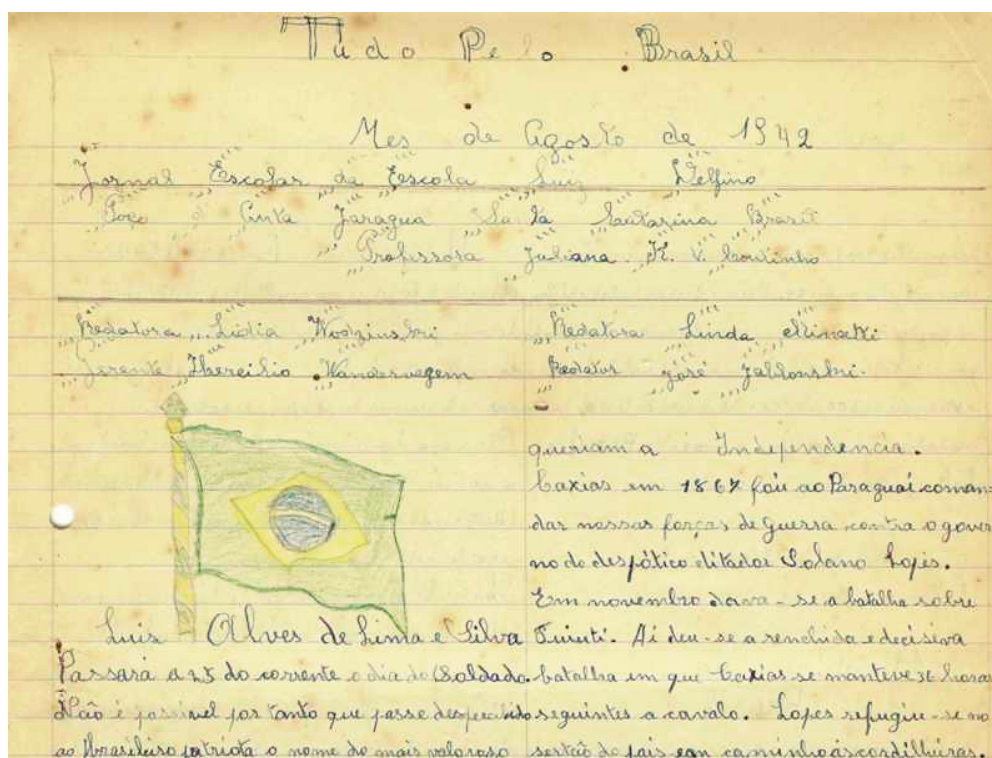 Tudo Pelo Brasil
Mes de Agosto de 1942
Jornal Escolar da Escola Luiz Delfino
Jaragua Santa Catarina Brasil
Professora Juliana K. V. Coutinho
Redatora Lidia Wodzinskri
Redatora Linda Minatti
Gerente Wandervegem
Redator José Jablonskri.
Luis Alves de Lima e Silva
Passará a 25 do corrente o dia do Soldado.
Não é possivel por tanto que passe despercibido
ao brasileiro patriota o nome do mais valoroso
queriam a Independencia.
Caxias em 1867 foi ao Paraguai coman-
dar nossas forças de Guerra contra o gover
no do despótico ditador Solano Lopes.
Em novembro dava-se a batalha sobre
Tuiuti. Ai deu-se a renchida e decisiva
batalha em que Caxias se manteve 36 horas
seguintes a cavalo. Lopes refugiu-se no
sertão do pais em caminho ás cordilheiras.